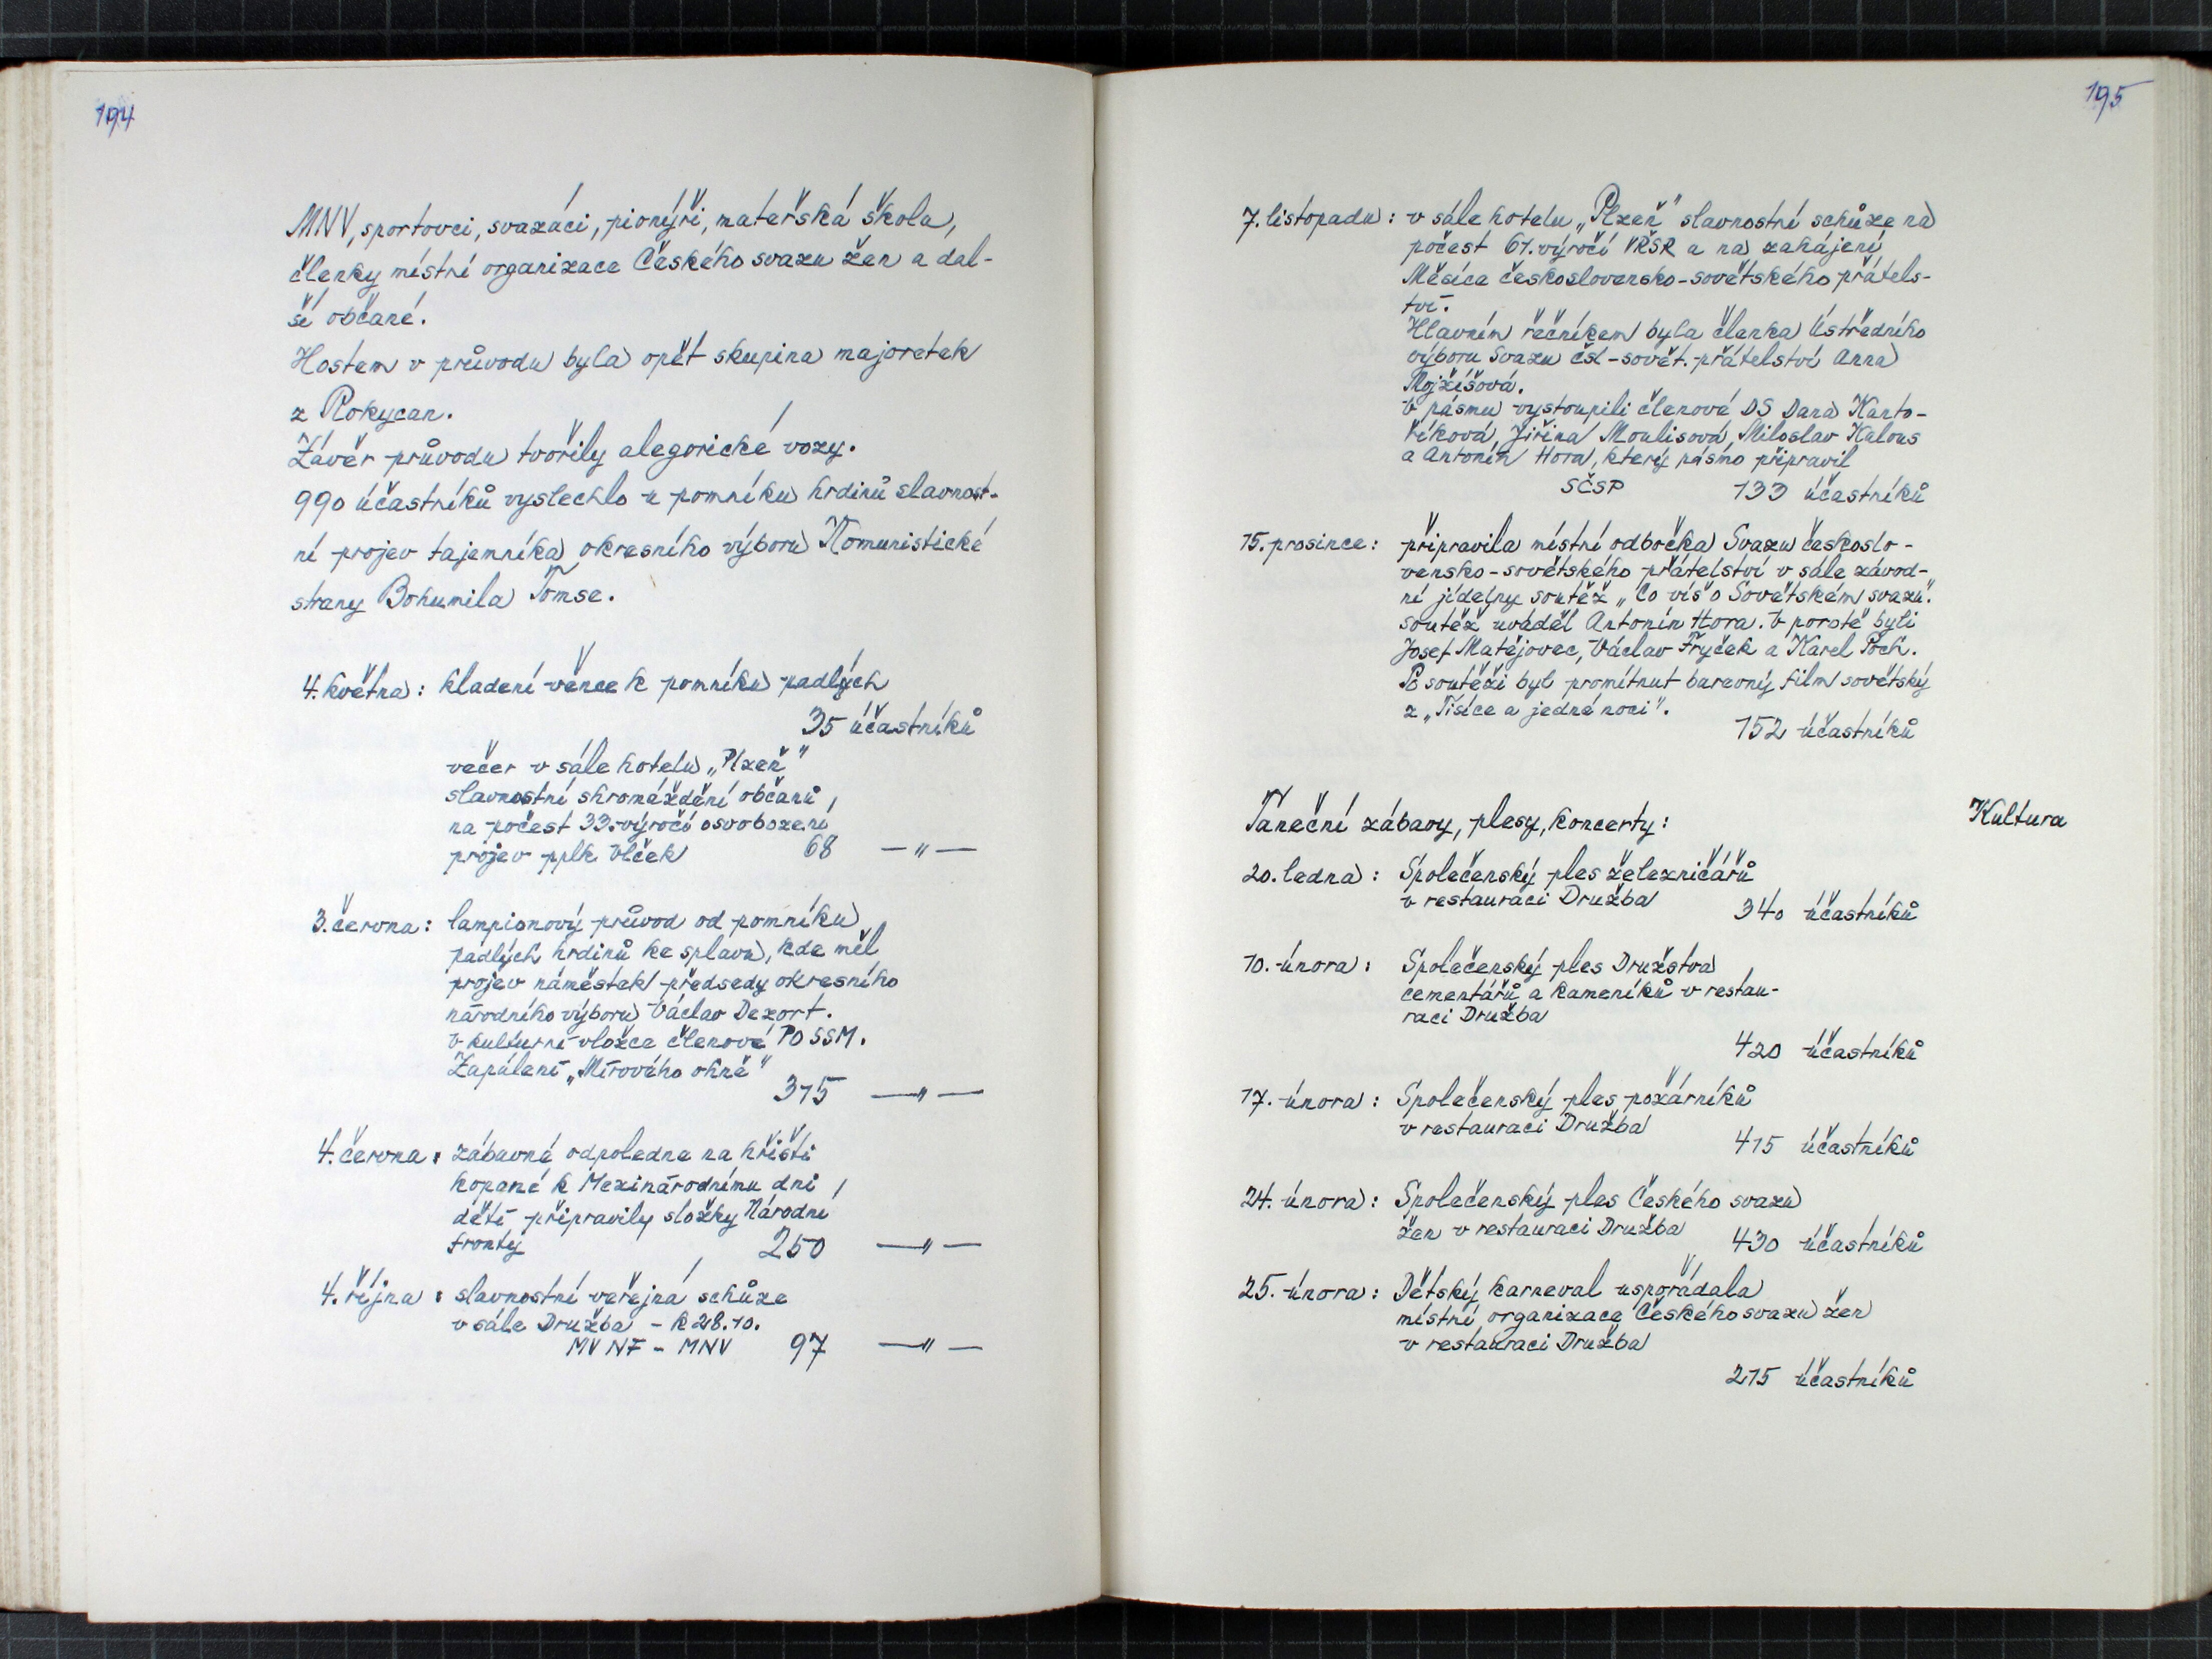 194
MNV, sportovci, svazáci, pionýři, mateřská škola,
členky místní organizace Českého svazu žen a dal-
ší občané.
Hostem v průvodu byla opět skupina majoretek
z Rokycan.
Závěr průvodu tvořily alegorické vozy.
990 účastníků vyslechlo u pomníku hrdinů slavnost-
ní projev tajemníka okresního výboru Komunistické
strany Bohumila Tomse.
4. května: kladení věnce k pomníku padlých
35 účastníků
večer v sále hotelu „Plzeň"
slavnostní shromáždění občanů
na počest 33. výročí osvobození
projev pplk. Vlček 68 — " —
3. června: lampionový průvod od pomníku
padlých hrdinů ke splavu, kde měl
projev náměstek předsedy okresního
národního výboru Václav Dezort.
V kulturní vložce členové PO SSM.
Zapálení „Mírového ohně"
315 — " —
4. června: zábavné odpoledne na hřišti
kopané k Mezinárodnímu dni
dětí připravily složky Národní
fronty 250 — " —
4. října: slavnostní veřejná schůze
v sále Družba - k 28.10.
MV NF - MNV 97 — " —
195
7. listopadu: v sále hotelu „Plzeň" slavnostní schůze na
počest 61. výročí VŘSR a na zahájení
Měsíce československo-sovětského přátels-
tví.
Hlavním řečníkem byla členka Ústředního
výboru Svazu čsl-sovět. přátelství Anna
Mojžíšová.
V pásmu vystoupili členové DS Dana Kanto-
říková, Jiřina Moulisová, Miloslav Kalous
a Antonín Hora, který pásmo připravil
SČSP 133 účastníků
15. prosince: připravila místní odbočka Svazu českoslo-
vensko-sovětského přátelství v sále závod-
ní jídelny soutěž „Co víš o Sovětském svazu".
soutěž uváděl Antonín Hora. V porotě byli
Josef Matějovec, Václav Fryček a Karel Poch.
Po soutěži byl promítnut barevný film sovětský
z „Tisíce a jedné noci".
152 účastníků
Taneční zábavy, plesy, koncerty:
Kultura
20. ledna: Společenský ples železničářů
v restauraci Družba 340 účastníků
10. února: Společenský ples Družstva
cementářů a kameníků v restau-
raci Družba
420 účastníků
17. února: Společenský ples požárníků
v restauraci Družba
415 účastníků
24. února: Společenský ples Českého svazu
žen v restauraci Družba 430 účastníků
25. února: Dětský karneval uspořádala
místní organizace Českého svazu žen
v restauraci Družba
215 účastníků